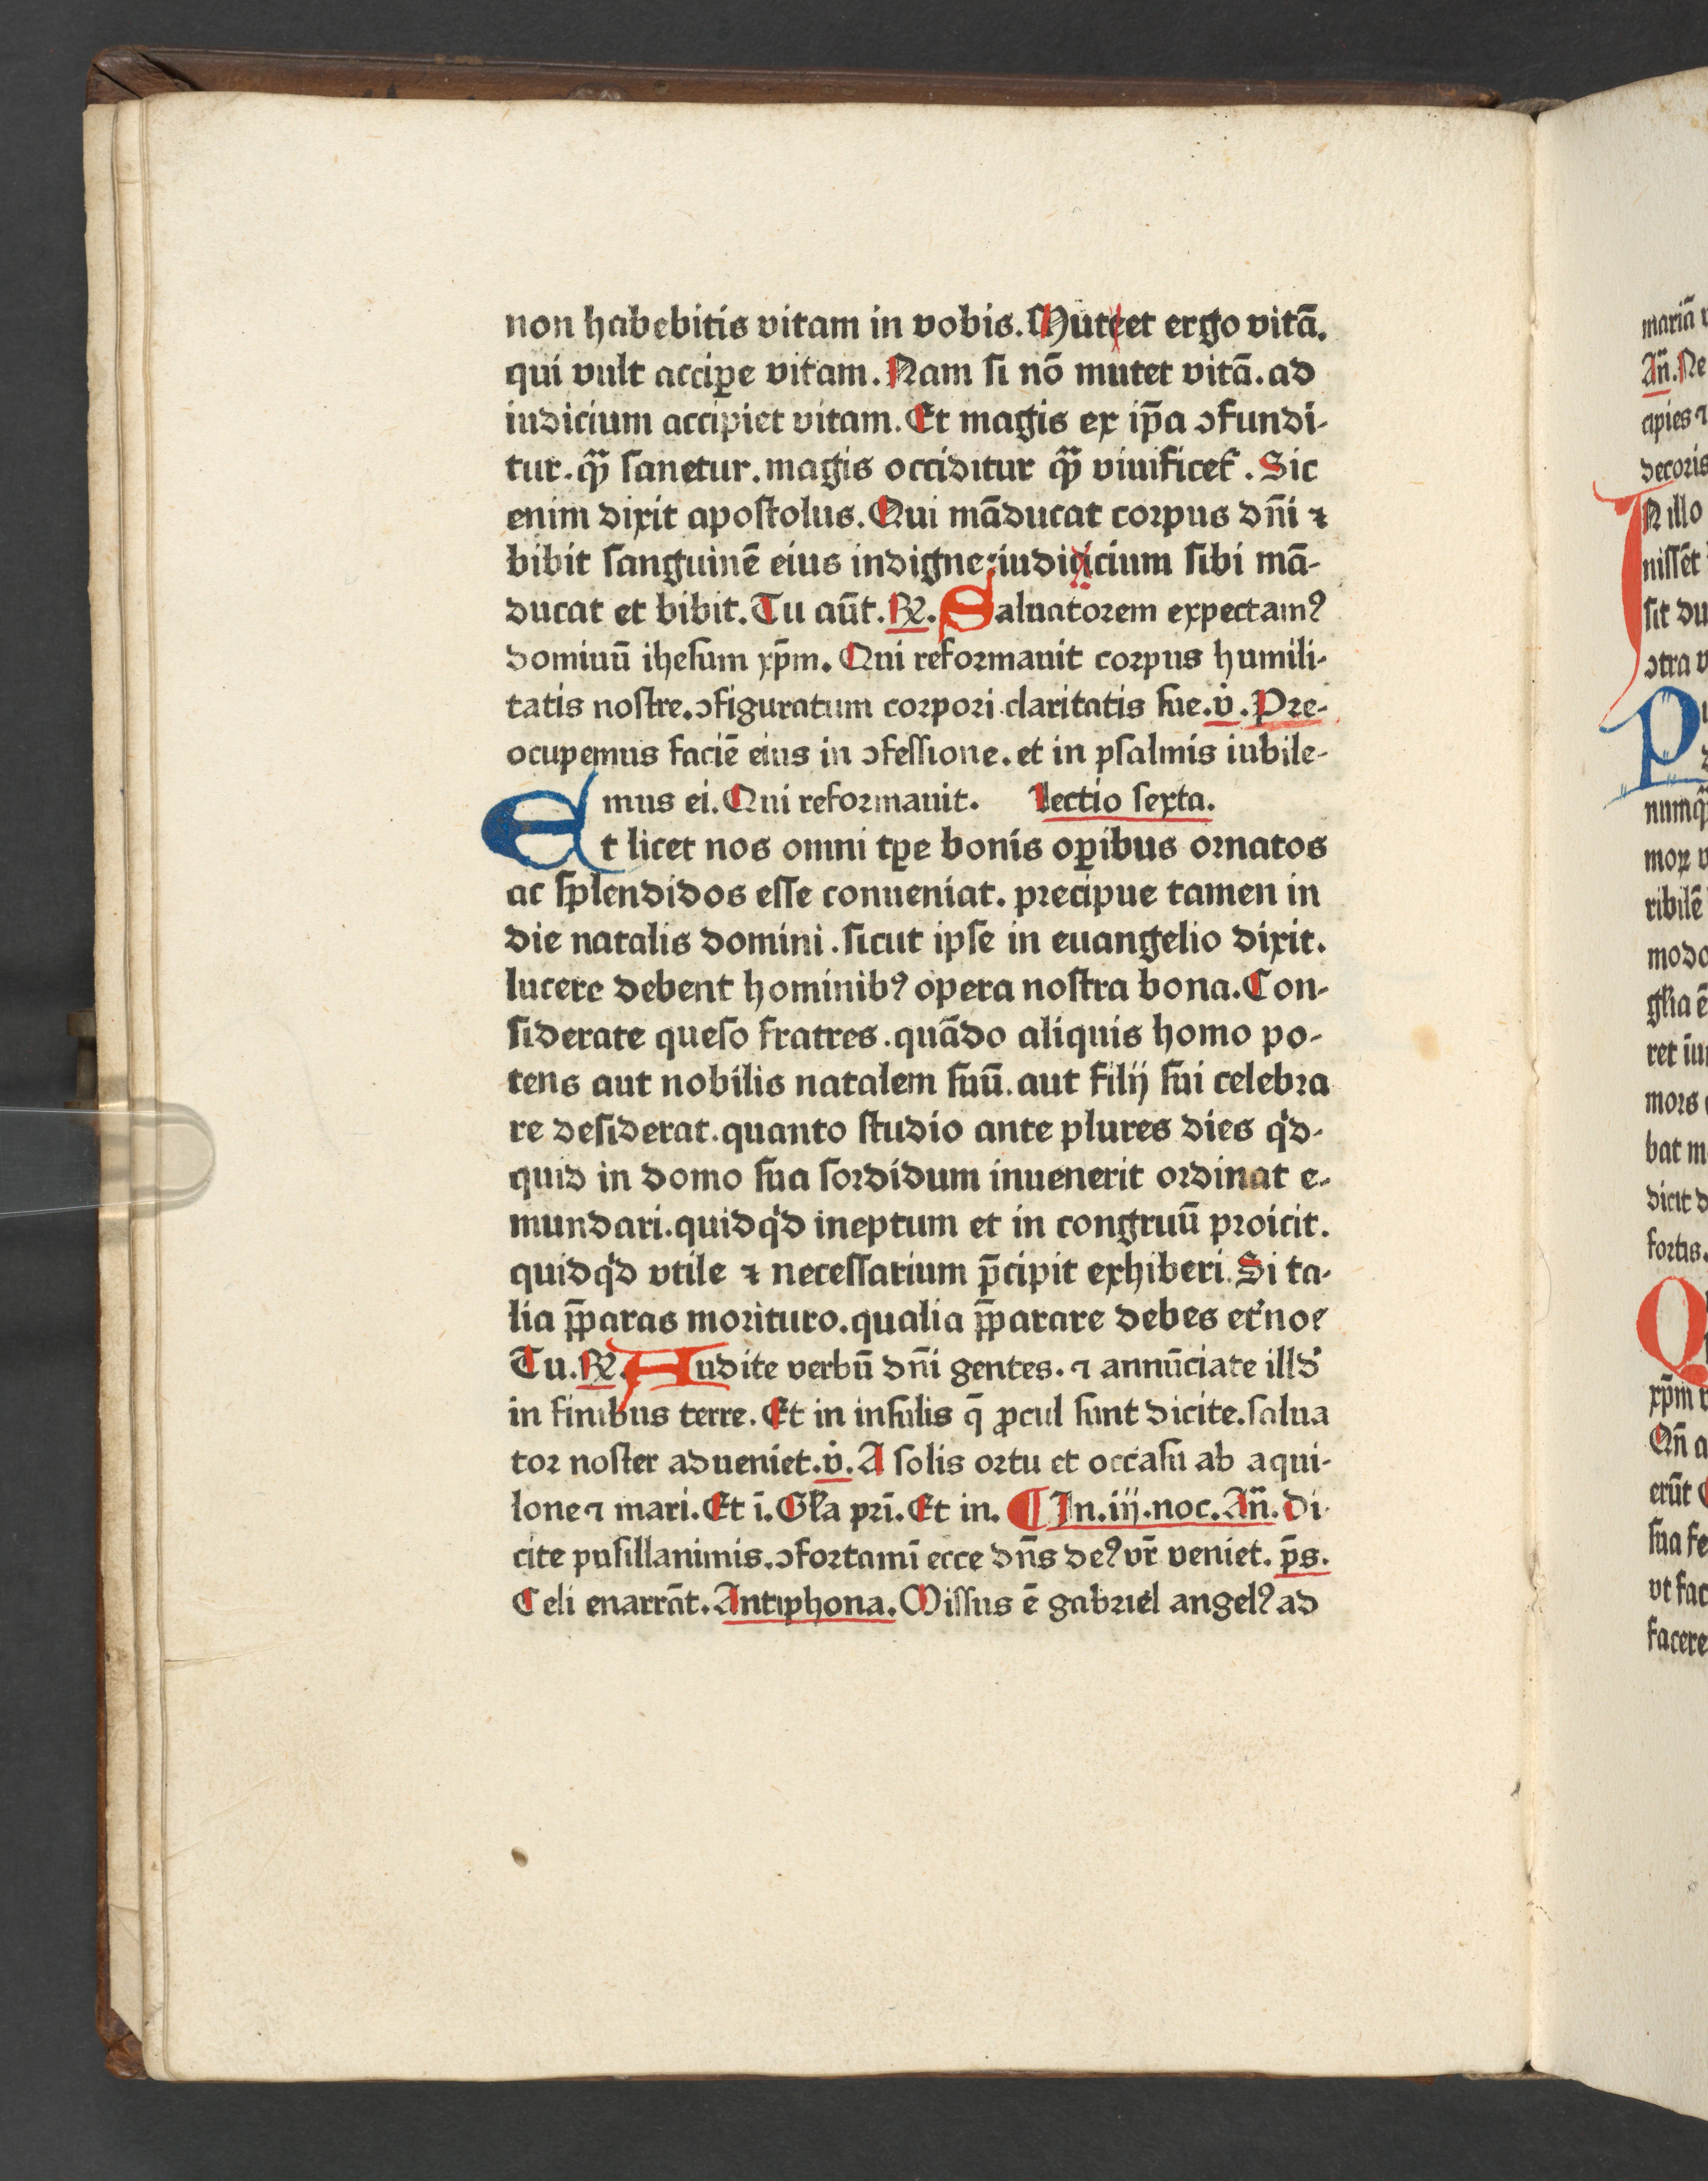 non habebitis vitam in vobis. Muteet ergo vitā.
qui vult accip̲e vitam. Nam si nō mutet vitā. ad
iudicium accipiet vitam. Et magis ex ip̄a ↄfundi-
tur. qȝ̄ sanetur. magis occiditur qȝ̄ viuificet᷑. Sic
enim dixit apostolus. Qui māducat corpus dn̄i ⁊
bibit sanguinē eius indigne: iudicicium sibi mā-
ducat et bibit. Tu aūt. ℟. Saluatorem expectamꝰ
domiuū ihesum xp̄m. Qui reformauit corpus humili-
tatis nostre. ↄfiguratum corpori claritatis sue. v̇. Pre-
ocupemus faciē eius in ↄfessione. et in psalmis iubile-
mus ei. Qui reformauit. Lectio sexta.
Et licet nos omni tꝑe bonis oꝑibus ornatos
ac splendidos esse conueniat. precipue tamen in
die natalis domini. sicut ipse in euangelio dixit.
lucere debent hominibꝰ opera nostra bona. Con-
siderate queso fratres. quādo aliquis homo po-
tens aut nobilis natalem suū. aut filij sui celebra
re desiderat. quanto studio ante plures dies qͥd-
quid in domo sua sordidum inuenerit ordinat e-
mundari. quidqͥd ineptum et in congruū proicit.
quidqͥd vtile ⁊ necessarium p̄cipit exhiberi. Si ta-
lia p̄paras morituro. qualia p̄parare debes et᷑noe
Tu. ℟. Audite verbū dn̄i gentes. ⁊ annūciate illd᷑
in finibus terre. Et in insulis q̄ ꝓcul sunt dicite. salua
tor noster adueniet. v̇. A solis ortu et occasu ab aqui-
lone ⁊ mari. Et ī. Gl̄a pri̅. Et in. ¶ In. iij. noc. An̄. Di-
cite pusillanimis. ↄfortamī ecce dn̄s deꝰ vr̄ veniet. p̄s.
Celi enarrāt. Antiphona. Missus ē gabriel angelꝰ ad